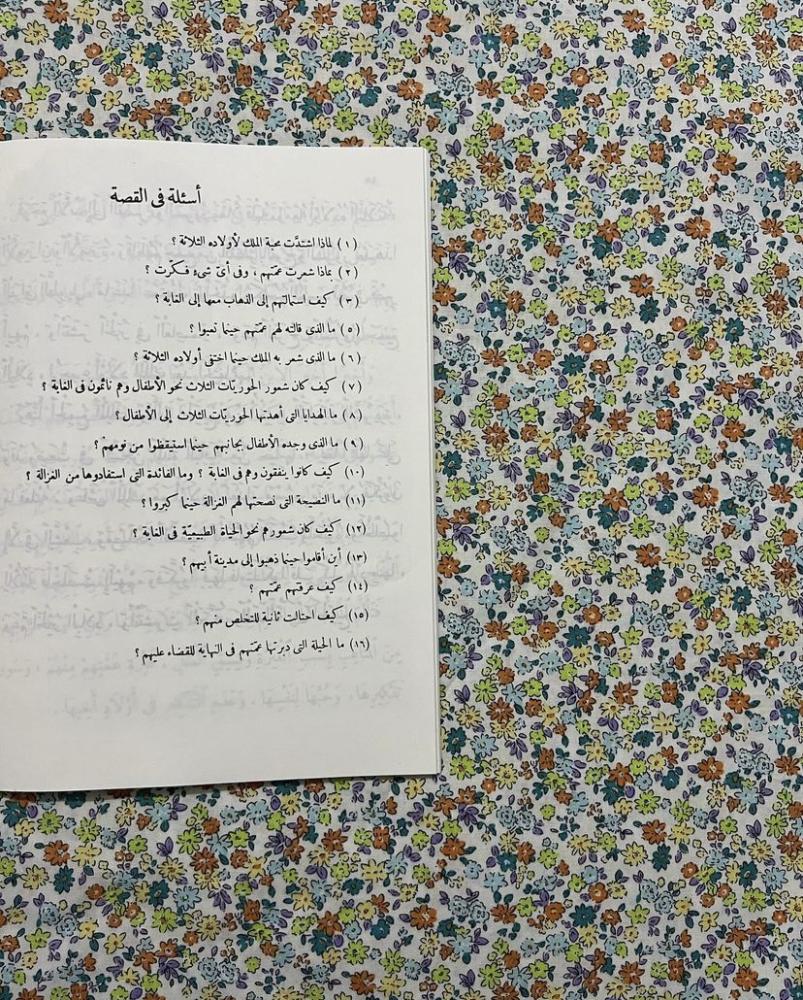 أسئلة فى القصة
(١) لماذا اشتدَّت محبة الملك لأولاده الثلاثة ؟
(٢) بماذا شعرت عمّتهم ، وفى أىّ شىء فكّرت ؟
(٣) كيف استمالتهم إلى الذهاب معها إلى الغابة ؟
(٥) ما الذى قالته لهم عمّتهم حينما تعبوا ؟
(٦) ما الذى شعر به الملك حينما اختفى أولاده الثلاثة ؟
(٧) كيف كان شعور الحوريّات الثلاث نحو الأطفال وهم نائمون فى الغابة ؟
(٨) ما الهدايا التى أهدتها الحوريّات الثلاث إلى الأطفال ؟
(٩) ما الذى وجده الأطفال بجانبهم حينما استيقظوا من نومهم ؟
(١٠) كيف كانوا ينفقون وهم فى الغابة ؟ وما الفائدة التى استفادوها من الغزالة ؟
(١١) ما النصيحة التى نصحتها لهم الغزالة حينما كبروا ؟
(١٢) كيف كان شعورهم نحو الحياة الطبيعيّة فى الغابة ؟
(١٣) أين أقاموا حينما ذهبوا إلى مدينة أبيهم ؟
(١٤) كيف عرفتهم عمّتهم ؟
(١٥) كيف احتالت ثانية للتخلص منهم ؟
(١٦) ما الحيلة التى دبرتها عمّتهم فى النهاية للقضاء عليهم ؟